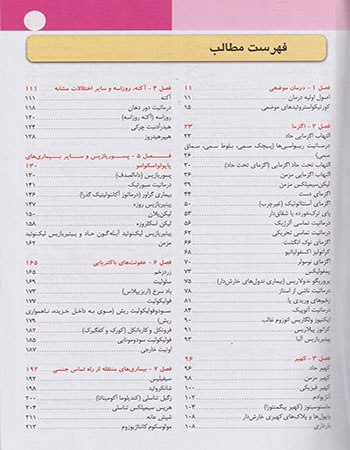 فهرست مطالب
فصل ۱ - درمان موضعی ۱۱
اصول اولیه درمان ۱۱
کورتیکواستروئیدهای موضعی ۱۵
فصل ۲ - اگزما ۲۳
التهاب اگزمایی حاد ۲۳
درماتیت ریوسی‌ها (پیچک سمی، بلوط سمی، سماق
سمی) ۲۶
التهاب تحت حاد اگزمایی (اگزمای تحت حاد) ۳۰
التهاب اگزمایی مزمن ۳۶
لیکن‌سیمپلکس مزمن ۳۹
اگزمای دست ۴۴
اگزمای آستئاتوتیک (غیرچرب) ۵۰
پای ترک‌خورده یا شقاق‌دار ۵۳
درماتیت تماسی آلرژیک ۵۶
درماتیت تماسی تحریکی ۶۲
اگزمای نوک انگشت ۶۶
کراتولیز اکسفولیاتیو ۶۸
اگزمای نومولر ۷۰
پمفولیکس ۷۳
پروریگو ندولاریس (بیماری ندول‌های خارش‌دار) ۷۵
درماتیت ناشی از استاز ۷۷
زخم‌های وریدی پا ۸۱
درماتیت آتوپیک ۸۴
ایکتیوز ولگاریس اتوزوم غالب ۹۰
کراتوز پیلاریس ۹۱
پیتیریازیس آلبا ۹۳
فصل ۳ - کهیر ۹۶
کهیر حاد ۹۶
کهیر مزمن ۹۸
کهیر فیزیکی ۱۰۰
آنژیوادم ۱۰۲
ماستوسیتوز (کهیر پیگمنتوزا) ۱۰۴
پاپول‌ها و پلاک‌های کهیری خارش‌دار
بارداری ۱۰۸
فصل ۴ - آکنه، روزاسه و سایر اختلالات مشابه ۱۱۱
آکنه ۱۱۱
درماتیت دور دهان ۱۱۸
روزاسه (آکنه روزاسه) ۱۲۰
هیدرآدنیت چرکی ۱۲۴
هیپرهیدروز ۱۲۸
فصل ۵ - پسوریازیس و سایر بیماری‌های
پاپولواسکواموس ۱۳۰
پسوریازیس (داءالصدف) ۱۳۰
درماتیت سبورئیک ۱۴۱
بیماری گراور (درماتوز آکانتولیتیک گذرا) ۱۴۶
پیتیریازیس روزه ۱۴۷
لیکن‌پلان ۱۵۰
لیکن اسکلروزه ۱۵۸
پیتیریازیس لیکنوئید آبله‌گون حاد و پیتیریازیس لیکنوئید
مزمن ۱۶۲
فصل ۶ - عفونت‌های باکتریایی ۱۶۵
زردزخم ۱۶۵
سلولیت ۱۶۹
باد سرخ (اریزیپلاس) ۱۷۳
فولیکولیت ۱۷۷
سودوفولیکولیت ریش
فرونکل و کاربانکل (کورک و کفگیرک) ۱۸۲
فولیکولیت سودومونایی ۱۸۵
اوتیت خارجی ۱۸۷
فصل ۷ - بیماری‌های منتقله از راه تماس جنسی ۱۹۲
سیفیلیس ۱۹۲
شانکروئید ۱۹۸
زگیل تناسلی (کندیلوما آکومیناتا) ۲۰۰
هرپس سیمپلکس تناسلی ۲۰۴
شپش عانه ۲۱۱
مولوسکوم کانتاژیوزوم ۲۱۳